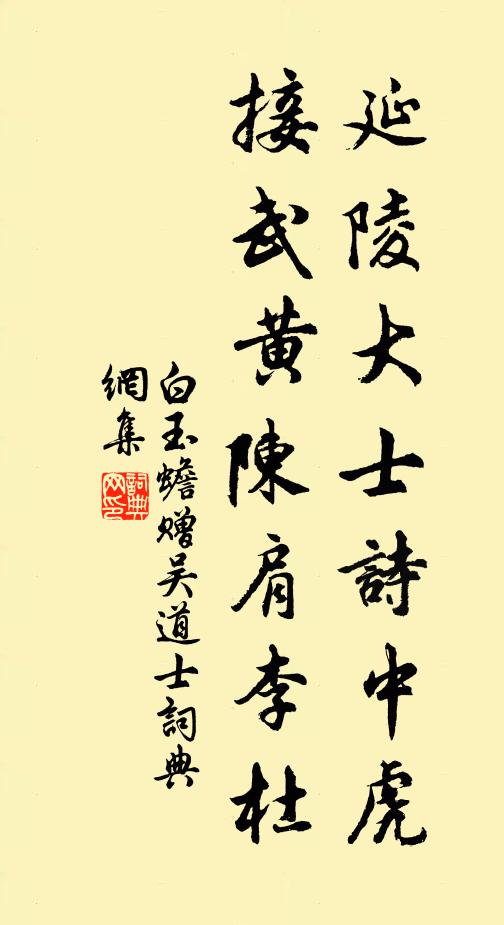 延陵大士詩中虎
接武黃陳肩李杜
白玉蟾贈吴道士詞典
網集
詞典
网印